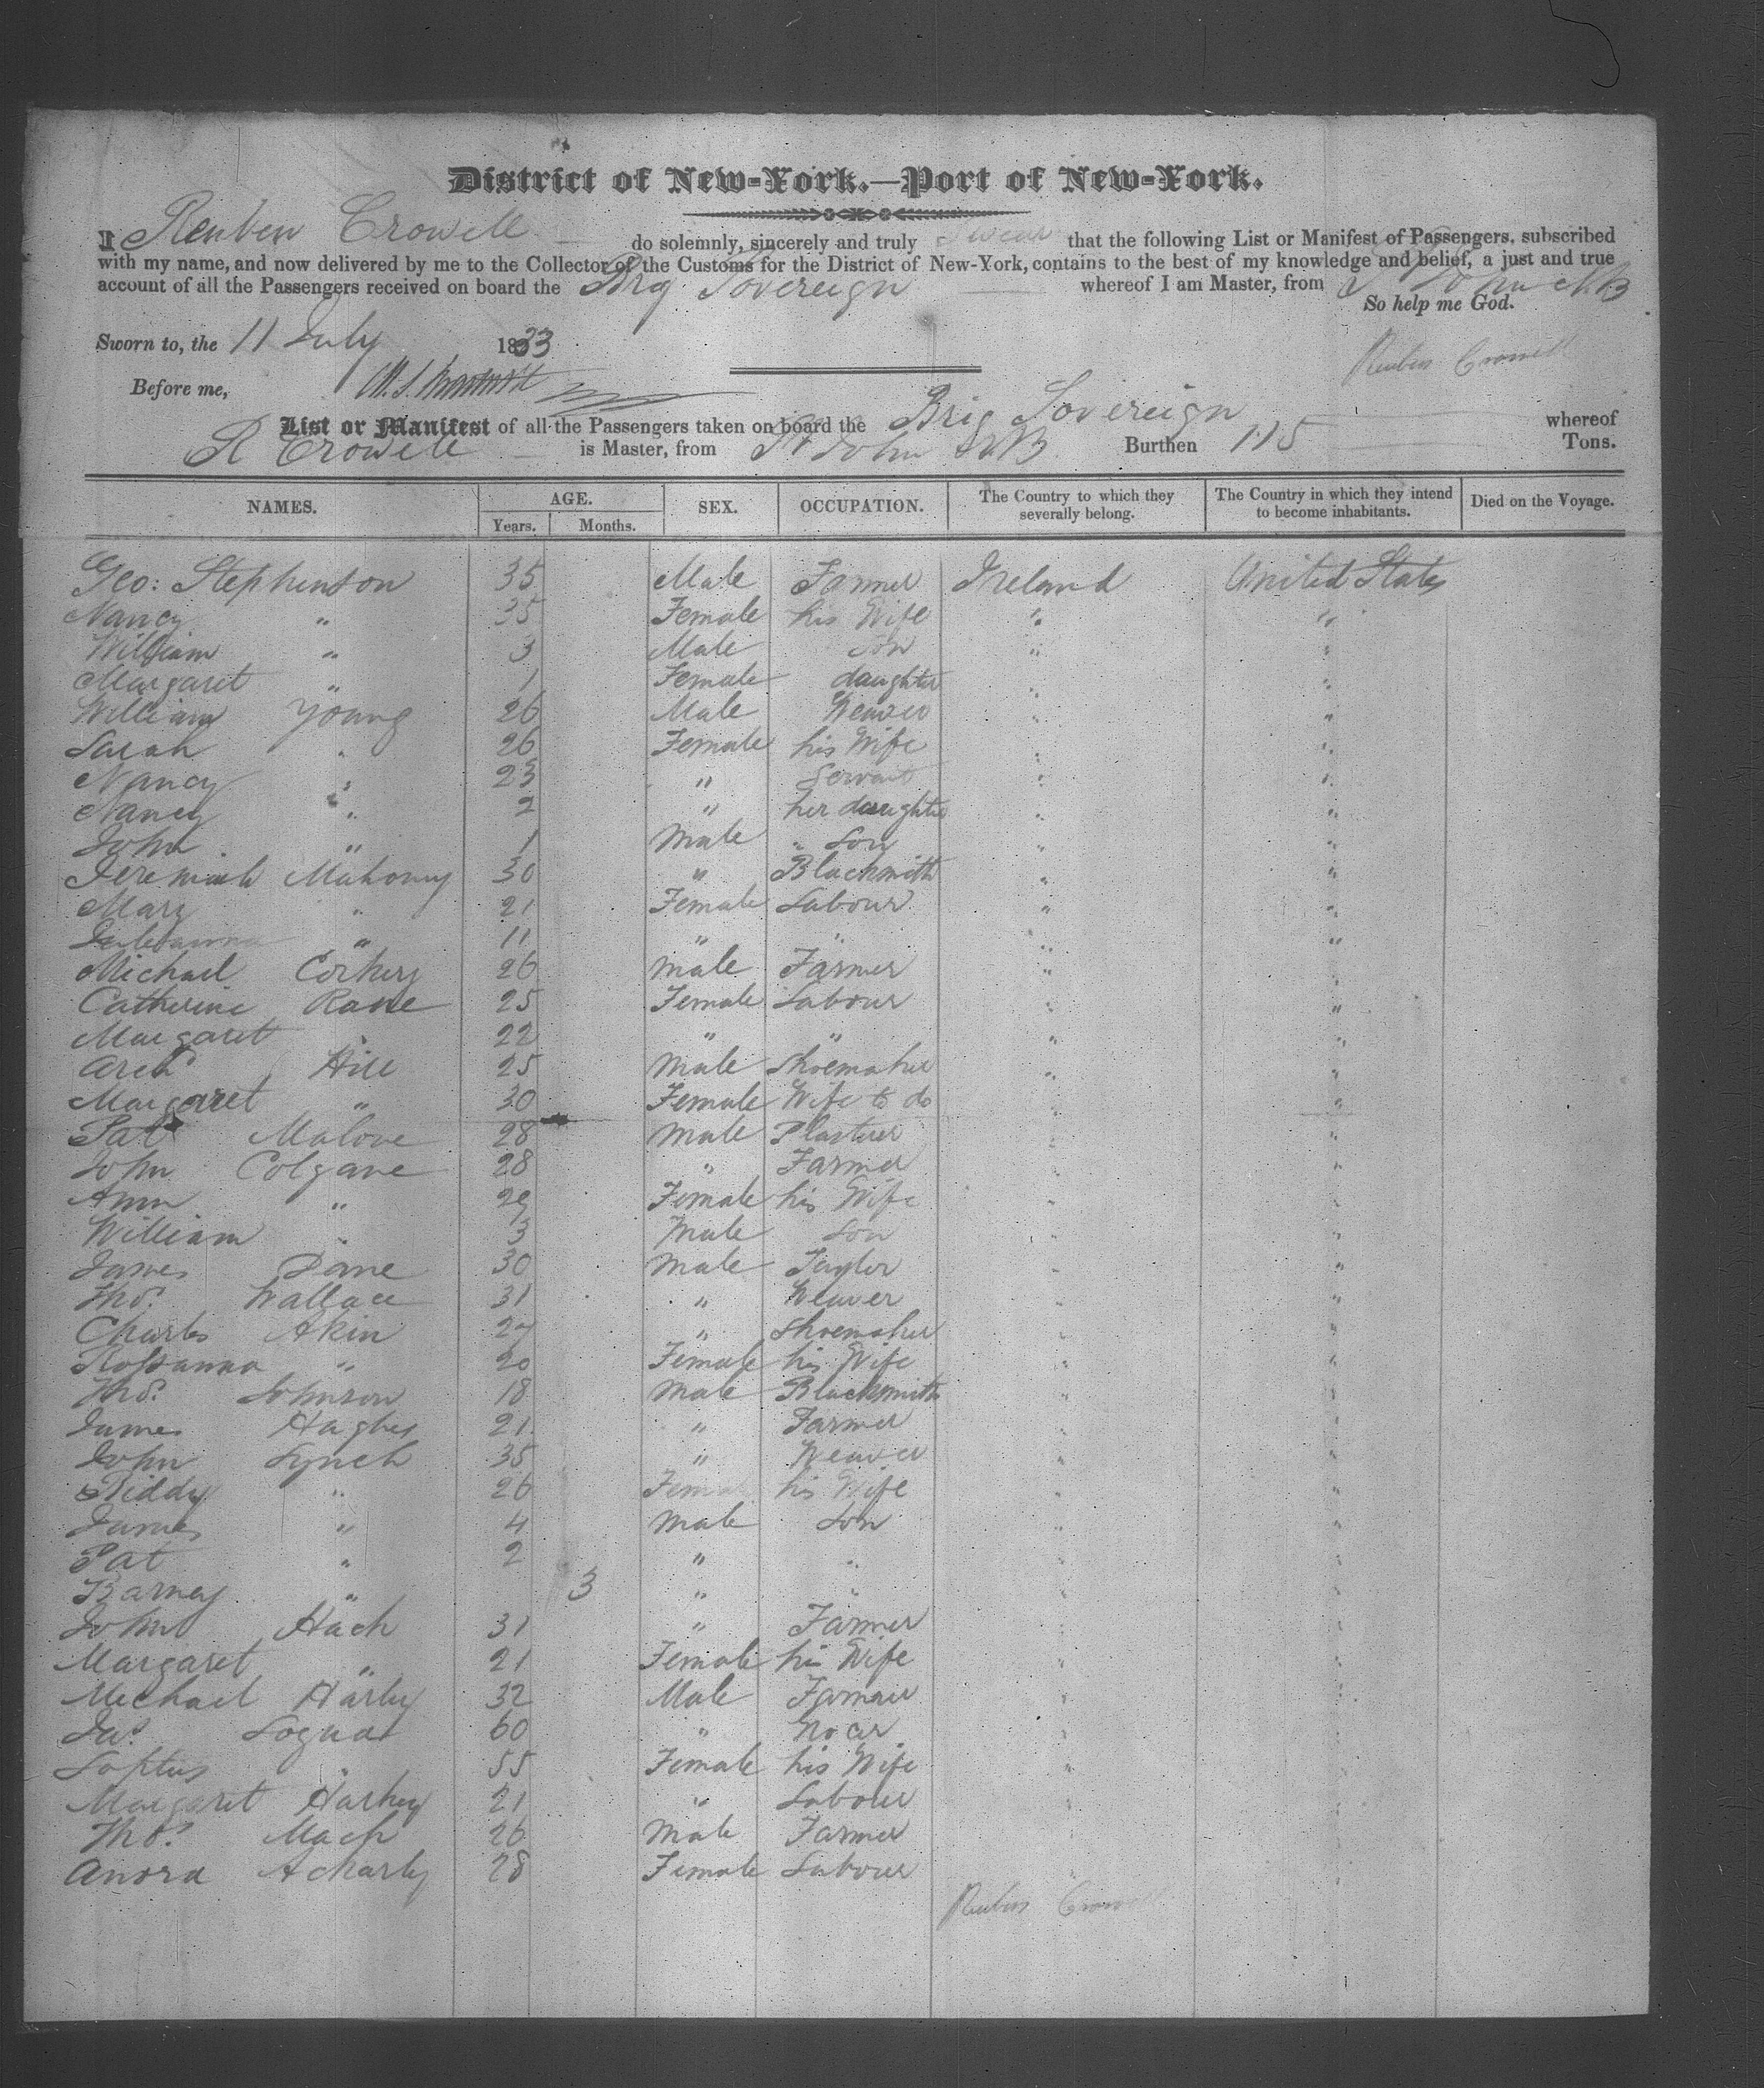 District of New-York.—Port of New-York.
I Reuben Crowell do solemnly, sincerely and truly swear that the following List or Manifest of Passengers, subscribed
with my name, and now delivered by me to the Collector of the Customs for the District of New-York, contains to the best of my knowledge and belief, a just and true
account of all the Passengers received on board the Brig Sovereign whereof I am Master, from St John NB
So help me God.
Sworn to, the 11 July 1833
Reuben Crowell
Before me,
List or Manifest of all the Passengers taken on board the Brig Sovereign whereof
R Crowell is Master, from St John NB Burthen 115 Tons.
NAMES. AGE. Years. Months. SEX. OCCUPATION. The Country to which they severally belong. The Country in which they intend to become inhabitants. Died on the Voyage.
Geo: Stephenson 35 Male Farmer Ireland United States
Nancy " 35 Female his Wife " "
William " 3 Male Son " "
Margaret " 1 Female daughter " "
William Young 26 Male Weaver " "
Sarah " 26 Female his Wife " "
Nancy " 23 " Servant " "
Nancy " 2 " her daughter " "
John " 1 Male " Son " "
Jeremiah Mahony 30 " Blacksmith " "
Mary " 21 Female Labour " "
" 11 " " " "
Michael Corkery 26 Male Farmer " "
Catherine Rane 25 Female Labour " "
Margaret " 22 " " " "
Archd Hill 25 Male Shoemaker " "
Margaret " 30 Female Wife to do " "
Pat Malone 28 Male Plasterer " "
John Colgane 28 " Farmer " "
Ann " 29 Female his Wife " "
William " 3 Male Son " "
James Dane 30 Male Taylor " "
Thos. Wallace 31 " Weaver " "
Charles Akin 27 " Shoemaker " "
Rossanna " 20 Female his Wife " "
Thos. Johnson 18 Male Blacksmith " "
James Hughes 21 " Farmer " "
John Lynch 35 " Weaver " "
Biddy " 26 Female his Wife " "
James " 4 Male Son " "
Pat " 2 " " " "
Barney " 3 " " " "
John Hach 31 " Farmer " "
Margaret " 21 Female his Wife " "
Michael Harley 32 Male Farmer " "
Jas. Loguat 60 " " "
Loftus " 55 Female his Wife " "
Margaret Harkey 21 " Labour " "
Thos. Mach 26 Male Farmer " "
Anora 28 Female Labour " "
Reuben Crowell